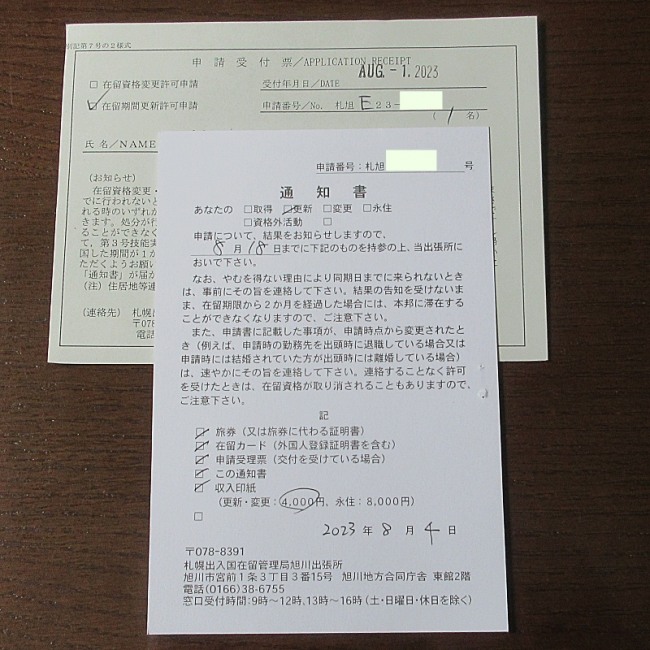 別記第7号の2様式
申請受付票/APPLICATION RECEIPT
□ 在留資格変更許可申請
受付年月日/DATE AUG.-1.2023
☑ 在留期間更新許可申請
申請番号/No. 札旭 E23-
(1名)
氏名/NAME
(お知らせ)
在留資格変更・
でに行われないと
れる時のいずれか
きます。処分が行
ることができなく
て,第3号技能実
国した期間が1か
ただくようお願い
「通知書」が届か
(注) 住居地等連
(連絡先) 札幌出
〒078
電話
申請番号:札旭 号
通知書
あなたの □取得 ☑更新 □変更 □永住
□資格外活動 □
申請について、結果をお知らせしますので、
8月18日までに下記のものを持参の上、当出張所に
おいで下さい。
なお、やむを得ない理由により同期日までに来られないとき
は、事前にその旨を連絡して下さい。結果の告知を受けないま
ま、在留期限から2か月を経過した場合には、本邦に滞在する
ことができなくなりますので、ご注意下さい。
また、申請書に記載した事項が、申請時点から変更されたと
き(例えば、申請時の勤務先を出頭時に退職している場合又は
申請時には結婚されていた方が出頭時には離婚している場合)
は、速やかにその旨を連絡して下さい。連絡することなく許可
を受けたときは、在留資格が取り消されることもありますので、
ご注意下さい。
記
☑ 旅券(又は旅券に代わる証明書)
☑ 在留カード(外国人登録証明書を含む)
☑ 申請受理票(交付を受けている場合)
☑ この通知書
☑ 収入印紙
(更新・変更:4,000円、永住:8,000円)
□
2023年8月4日
〒078-8391
札幌出入国在留管理局旭川出張所
旭川市宮前1条3丁目3番15号 旭川地方合同庁舎 東館2階
電話(0166)38-6755
窓口受付時間:9時~12時、13時~16時(土・日曜日・休日を除く)